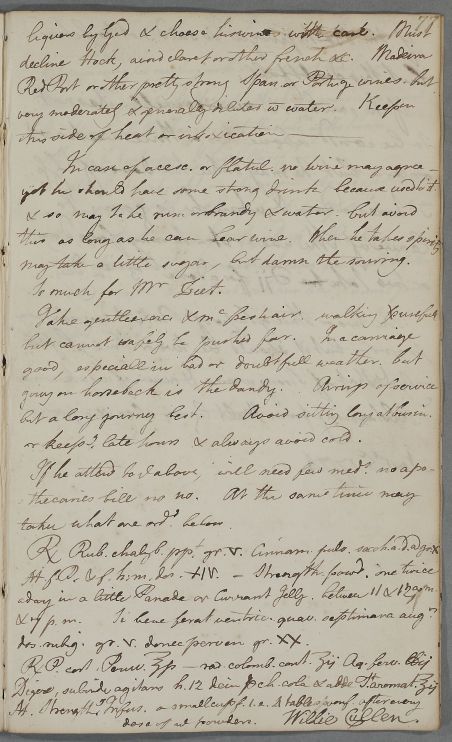 liquors by God & choose his wines with care. Must
decline Hock, acid claret or other french &c. Madeira
Red Port or other pretty strong Span. or Portug wines. but
very moderately & generally diluted w water. Keep on
this side of heat or intoxication
In case of acesc. or flatul. no wine may agree
yet he should have some strong drink because used to it
& so may take rum or brandy & water. but avoid
this as long as he can bear wine. When he takes spirits
may take a little sugar, but damn the souring.
So much for Mr Diet.
Take gentle exerc & mc fresh air. walking useful
but cannot safely be pushed far. In a carriage
good, especiall in bad or doubtfull weather. but
going on horseback is the dandy. Airings of service
but a long journey best. Avoid sitting long at busin.
or keepg late hours & always avoid cold.
If he attend to above, will need few meds no apo-
thecaries bill no no. At the same time may
take what are ordd below.
R Rub. chalyb. ppt gr. v. Cinnam. pulv. sacch. a.d. a gr. x
M. f. P. & f. h. m. dos. XIV. – Strength. powd. one twice
a day in a little Panada or Currant Jelly. between 11 & 12 a.m.
& p. m. Si bene ferat ventric. quav. septimana aug
dos. rubig. gr. v. donec perven gr. XX.
R P. cort. Peruv. ℥ss – rad colomb. cont. ʒij Aq. ferv.
Digere, subinde agitans h. 12 dein col. & adde T. aromat. ʒij
M. Strength. Infus. a small cupf. i.e. 4 tablespoonf. after every
dose of powders. Willie Cullen